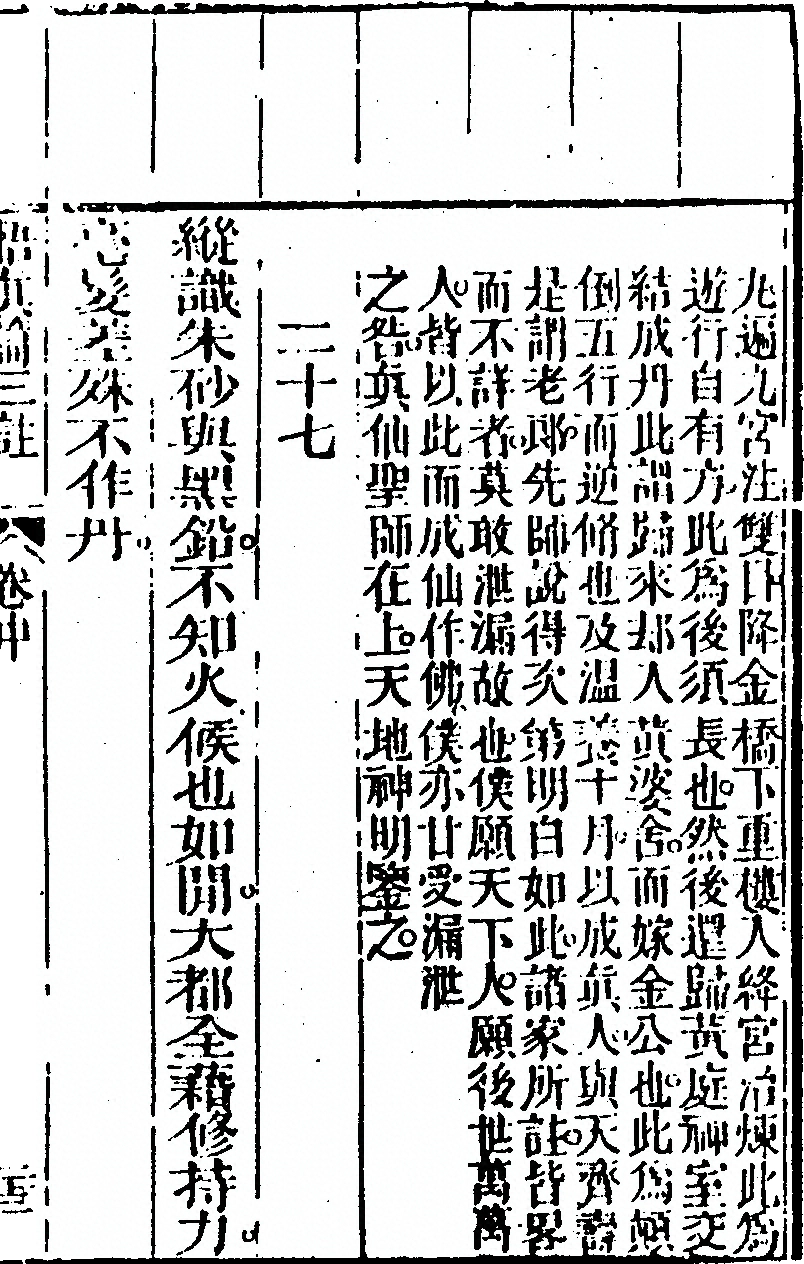 九遍九宮注雙目降金橋下重樓入絳宮冶煉此為
遊行自有方此為後須長也然後還歸黃庭神室交
結成丹此謂歸來却入黃婆舍而嫁金公也此為顛
倒五行而逆脩也及温養十月以成真人與天齊壽
是謂老郎先師說得次第明白如此諸家所註皆畧
而不詳者莫敢泄漏故也僕願天下人願後世萬萬
人皆以此而成仙作佛僕亦甘受漏泄
之咎真仙聖師在上天地神明鑒之
二十七
縱識朱砂與黑鉛不知火候也如閒大都全藉修持力
毫髮差殊不作丹
悟真篇三註 卷中